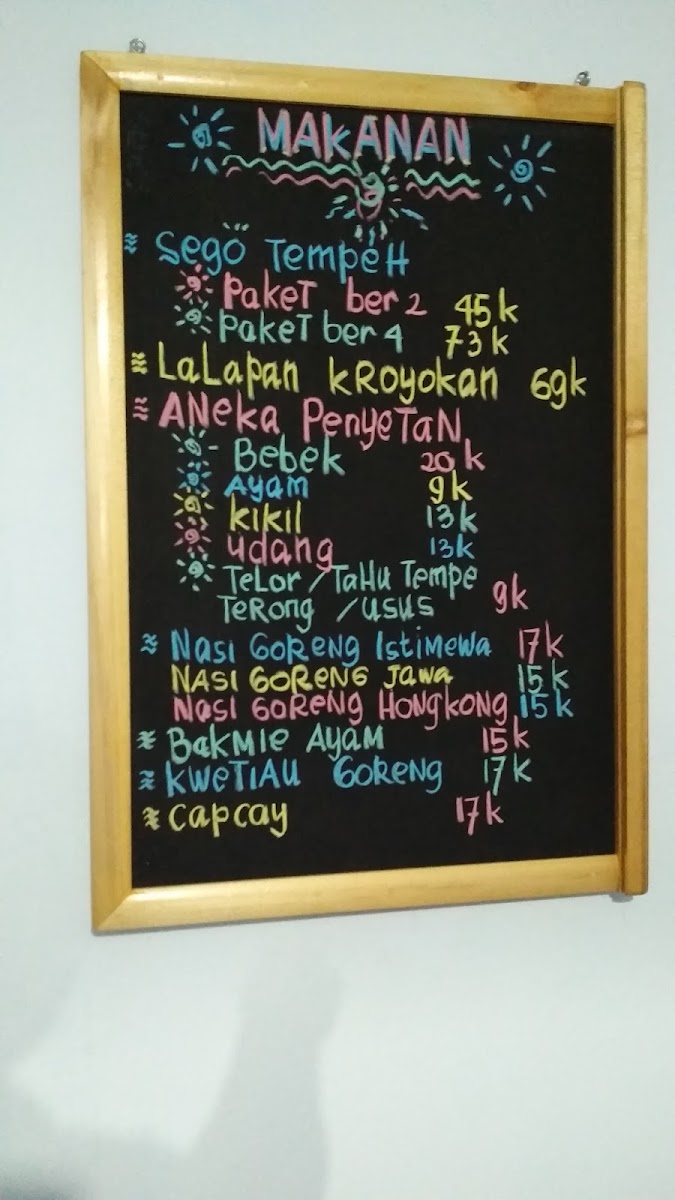 MAKANAN
Segö TempeH
Paket ber 2 45k
Paket ber 4 73k
LaLapan kRoyokan 69k
ANeka PenyeTaN
- Bebek 20k
Ayam 9k
kikil 13k
udang 13k
TeLor / TaHu Tempe
TeRong / usus 9k
Nasi GoReng Istimewa 17k
NASI GORENG Jawa 15k
Nasi GoReNG HongkoNg 15k
BakMie Ayam 15k
KweTiAu GoReng 17k
Capcay 17k